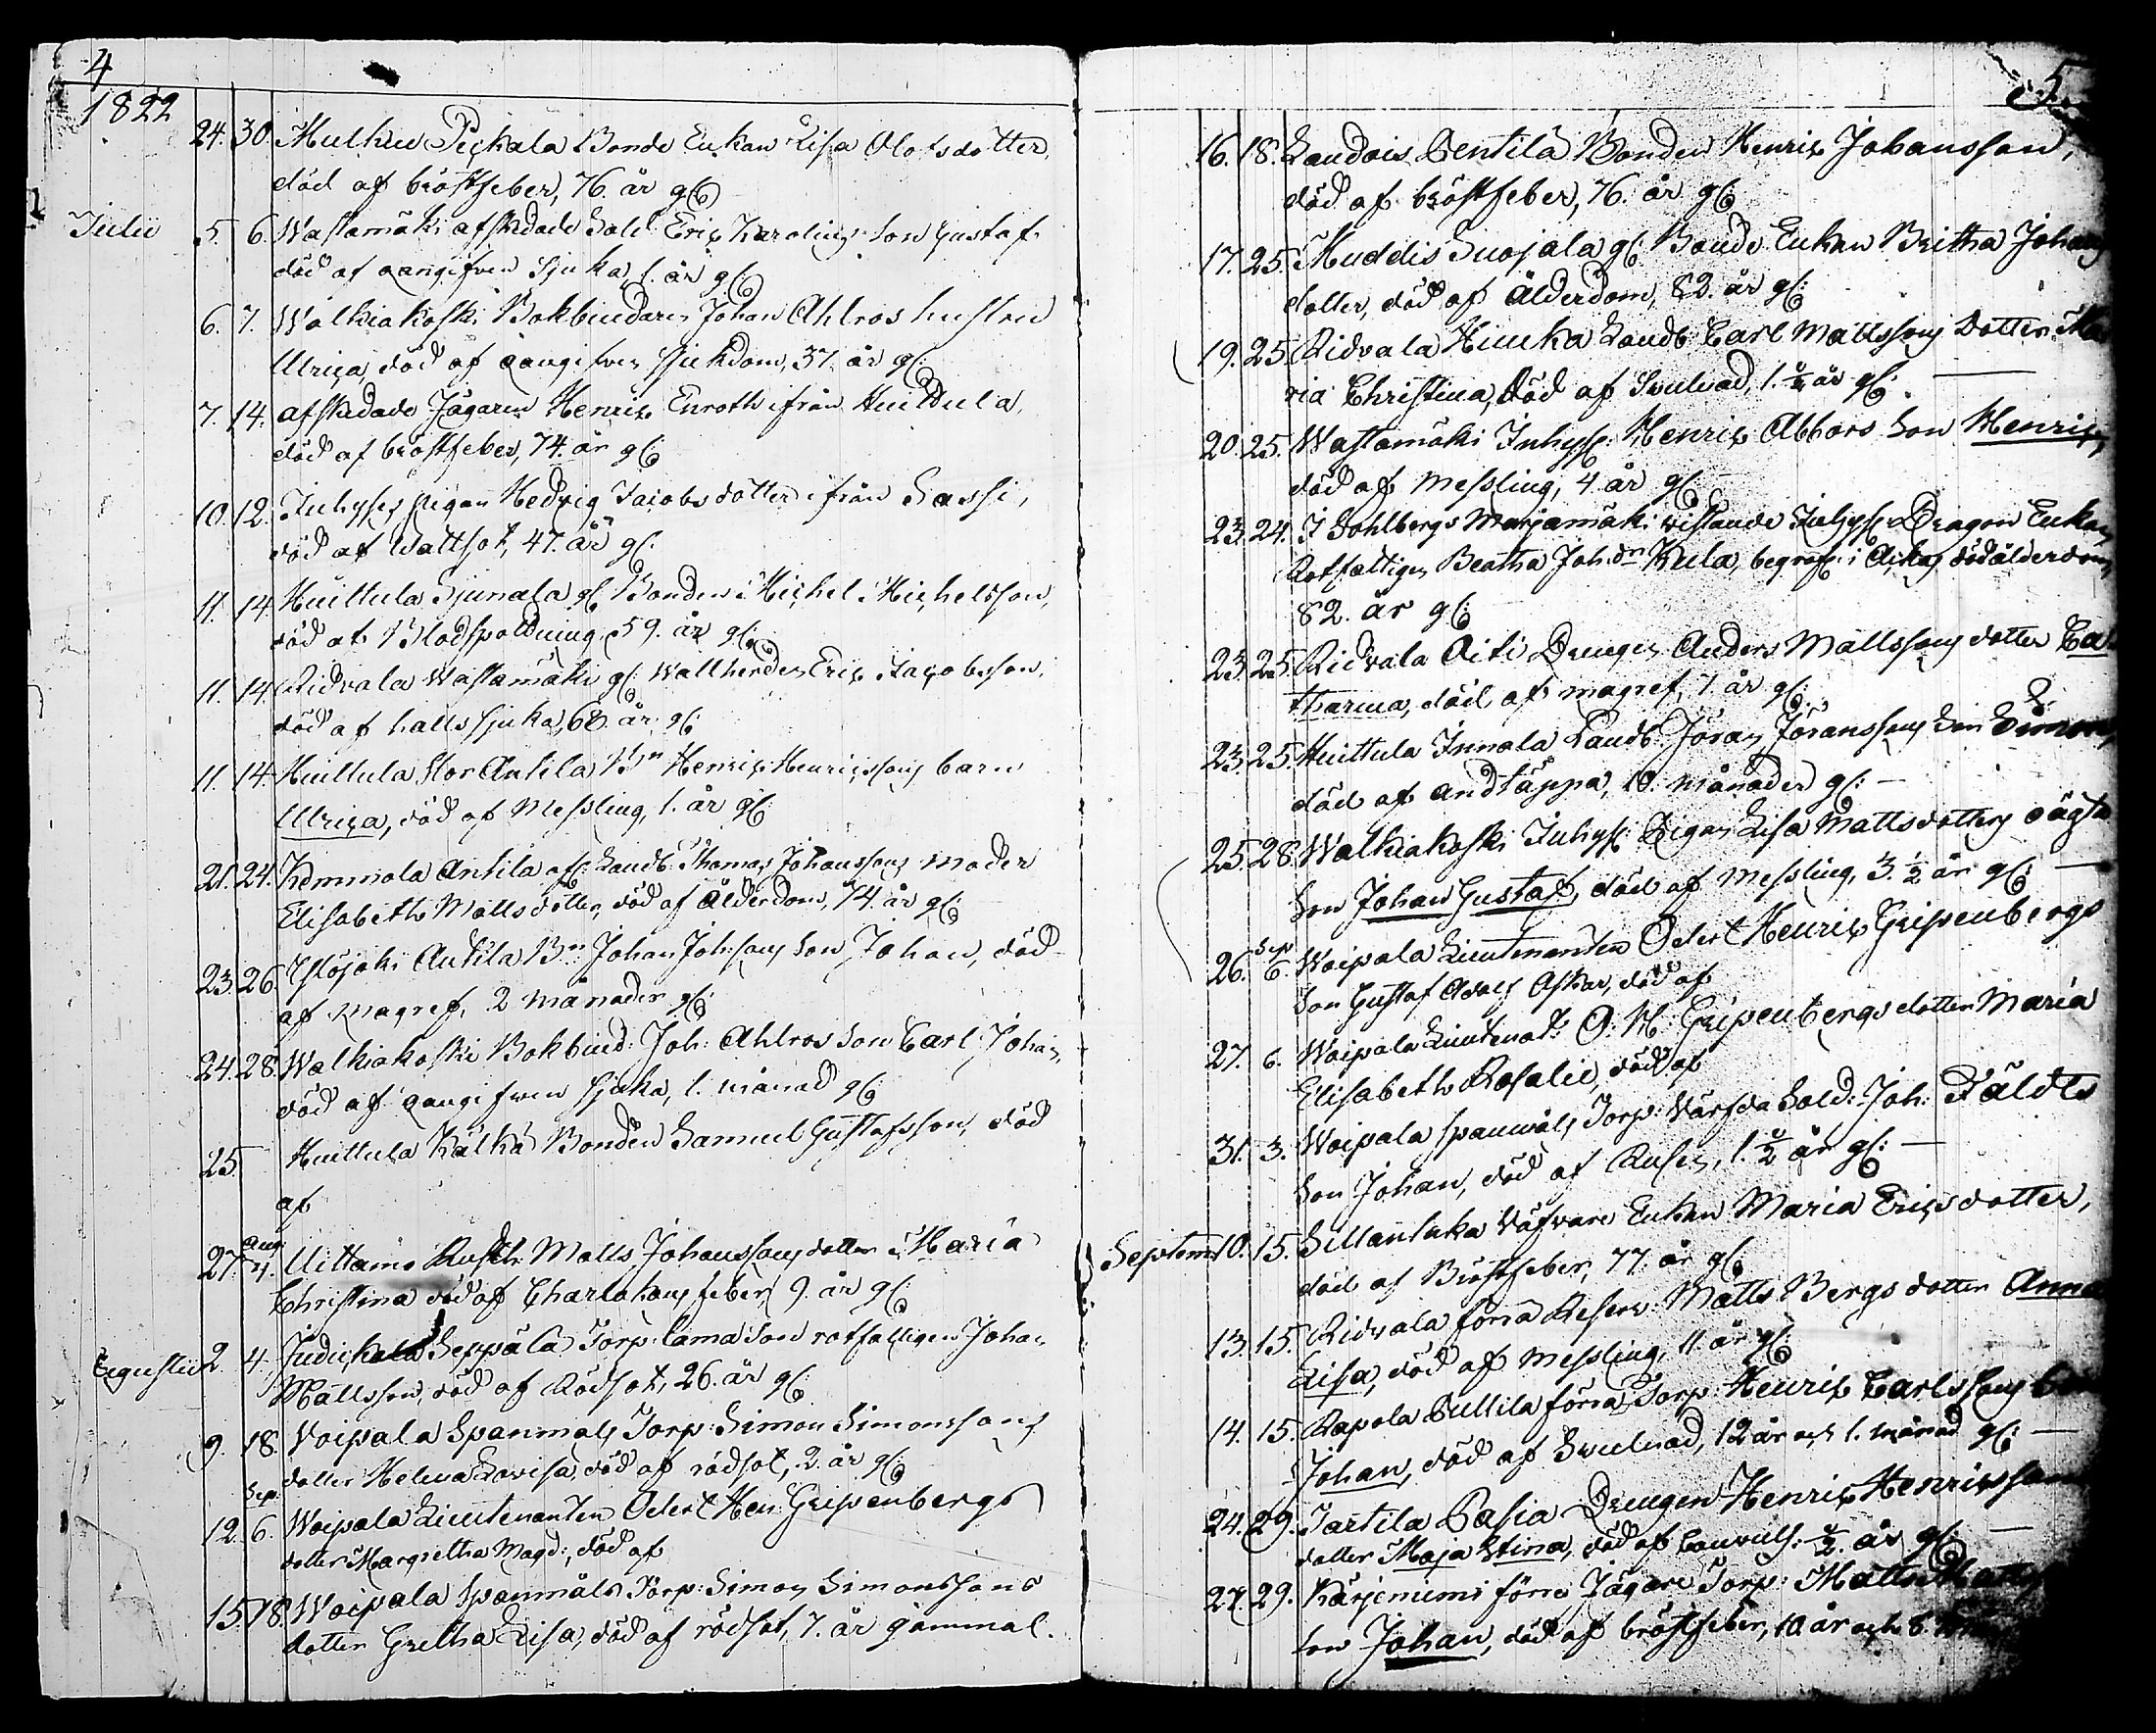 4
1822
24. 30. Mulkiu Pickala Bonde Enkan Lisa Olofsdotter,
död af bröstfeber, 76. år gl:
Julii 5. 6. Wastamäki afskedade Sold: Eric Karolins son Gustaf
död af oangifven sjuka, 1. år gl:
6. 7. Walkiakoski Bokbindaren Johan Ahlros hustru
Ulrica, död af oangifven sjukdom, 37. år gl:
7. 14. afskedade Jägaren Henric Enroth ifrån Huittula,
död af bröstfeber, 74. år gl:
10. 12. Inhyses pigan Hedvig Jacobsdotter ifrån Sassi,
död af Wattsot, 47. år gl:
11. 14. Huittula Sjunala gl: Bonden Michel Michelsson,
död af Blodspottning 59. år gl:
11. 14. Ridvala Wastamäki gl: Wallherden Eric Jacobsson,
död af halssjuka, 68. år gl:
11. 14. Huittula Stor Antila Bn Henric Henricssons barn
Ulrica, död af Messling, 1. år gl:
21. 24. Kemmola Antila afl: Landb: Thomas Johanssons moder
Elisabeth Mattsdotter, död af Ålderdom, 74. år gl:
23. 26. Ylöjoki Antila Bn: Johan Johssons son Johan, död
af magref, 2 månader gl:
24. 28. Walkiakoski Bokbind: Joh: Ahlros son Carl Johan,
död af oangifven sjuka, 1. månad gl:
25. Huittula Kälkä Bonden Samuel Gustafsson, död
af
27. Aug 4. Uittamo Rusth: Matts Johanssons dotter Maria
Christina död af Charlakans feber, 9. år gl:
Augustii 2. 4. Judickala Seppälä Torp: lama son rotfattigen Johan
Mattsson, död af Rödsot, 26. år gl:
9. 18. Voipala Spanmåls Torp: Simon Simonssons
dotter Helena Lovisa, död af rödsot, 2. år gl:
12. Sep. 6. Woipala Lieutenanten Odert Hen: Gripenbergs
dotter Margretha Magd:, död af
15. 18. Woipala Spanmåls Torp: Simon Simonssons
dotter Gretha Lisa, död af rödsot, 7. år gammal.
5
16. 18. Saudois Pentilä Bonden Henric Johansson,
död af bröstfeber, 76. år gl:
17. 25. Muddis Suojala gl: Bonde Enkan Britha Johans
dotter, död af Ålderdom, 82. år gl:
19. 25. Ridvala Heinka Landb: Carl Mattssons Dotter Ma
ria Christina, död af Svulnad, 1. ½ år gl:
20. 25. Wastamäki Inhys: Henric Abbors son Henric,
död af Messling, 4. år gl:
23. 24. I Sohlbergs Marjamäki vistande Inhys: Dragon Enkan
Rotfattigen Beatha Joh:dr Kula, begrafs: i Ackas död ålderdom,
82. år gl:
23. 25. Ridvala Äiti Drengen Anders Mattssons dotter Ca
tharina, död af magref, 1. år gl:
23. 25. Huittula Innala Landb: Jöran Jöranssons son Simon,
död af andtäppa, 10. månader gl:
25. 28. Walkiakoski Inhys: Pigan Lisa Mattsdotters oägta
son Johan Gustaf, död af messling, 3. ½ år gl:
26. Sep 6. Woipala Lieutenanten Odert Henric Gripenbergs
son Gustaf Adolf Oskar, död af
27. 6. Woipala Lieutenat: O: H: Gripenbergs dotter Maria
Elisabeth Rosalie, död af
31. 3. Woipala Spanmåls Torp: Värfda Sold: Joh: Fäldts
son Johan, död af Rusen, 1. ½ år gl:
Septem: 10. 15. Sillantaka Väfvare Enkan Maria Ericsdotter,
död af Bröstfeber, 77. år gl:
13. 15. Ridvala förra Reserv: Matts Bergs dotter Anna
Lisa, död af messling, 11. år gl:
14. 15. Rapola Pullila förra Torp: Henric Carlssons
Johan, död af Svulnad, 12 år och 1. månad gl:
24. 29. Tartila Pasia Drengen Henric Henricssons
dotter Maja Stina, död af Convuls: ½. år gl:
27. 29. Kärjeniemi förre Jägare Torp: Matts
son Johan, död af bröstfeber, 10 år och 8.